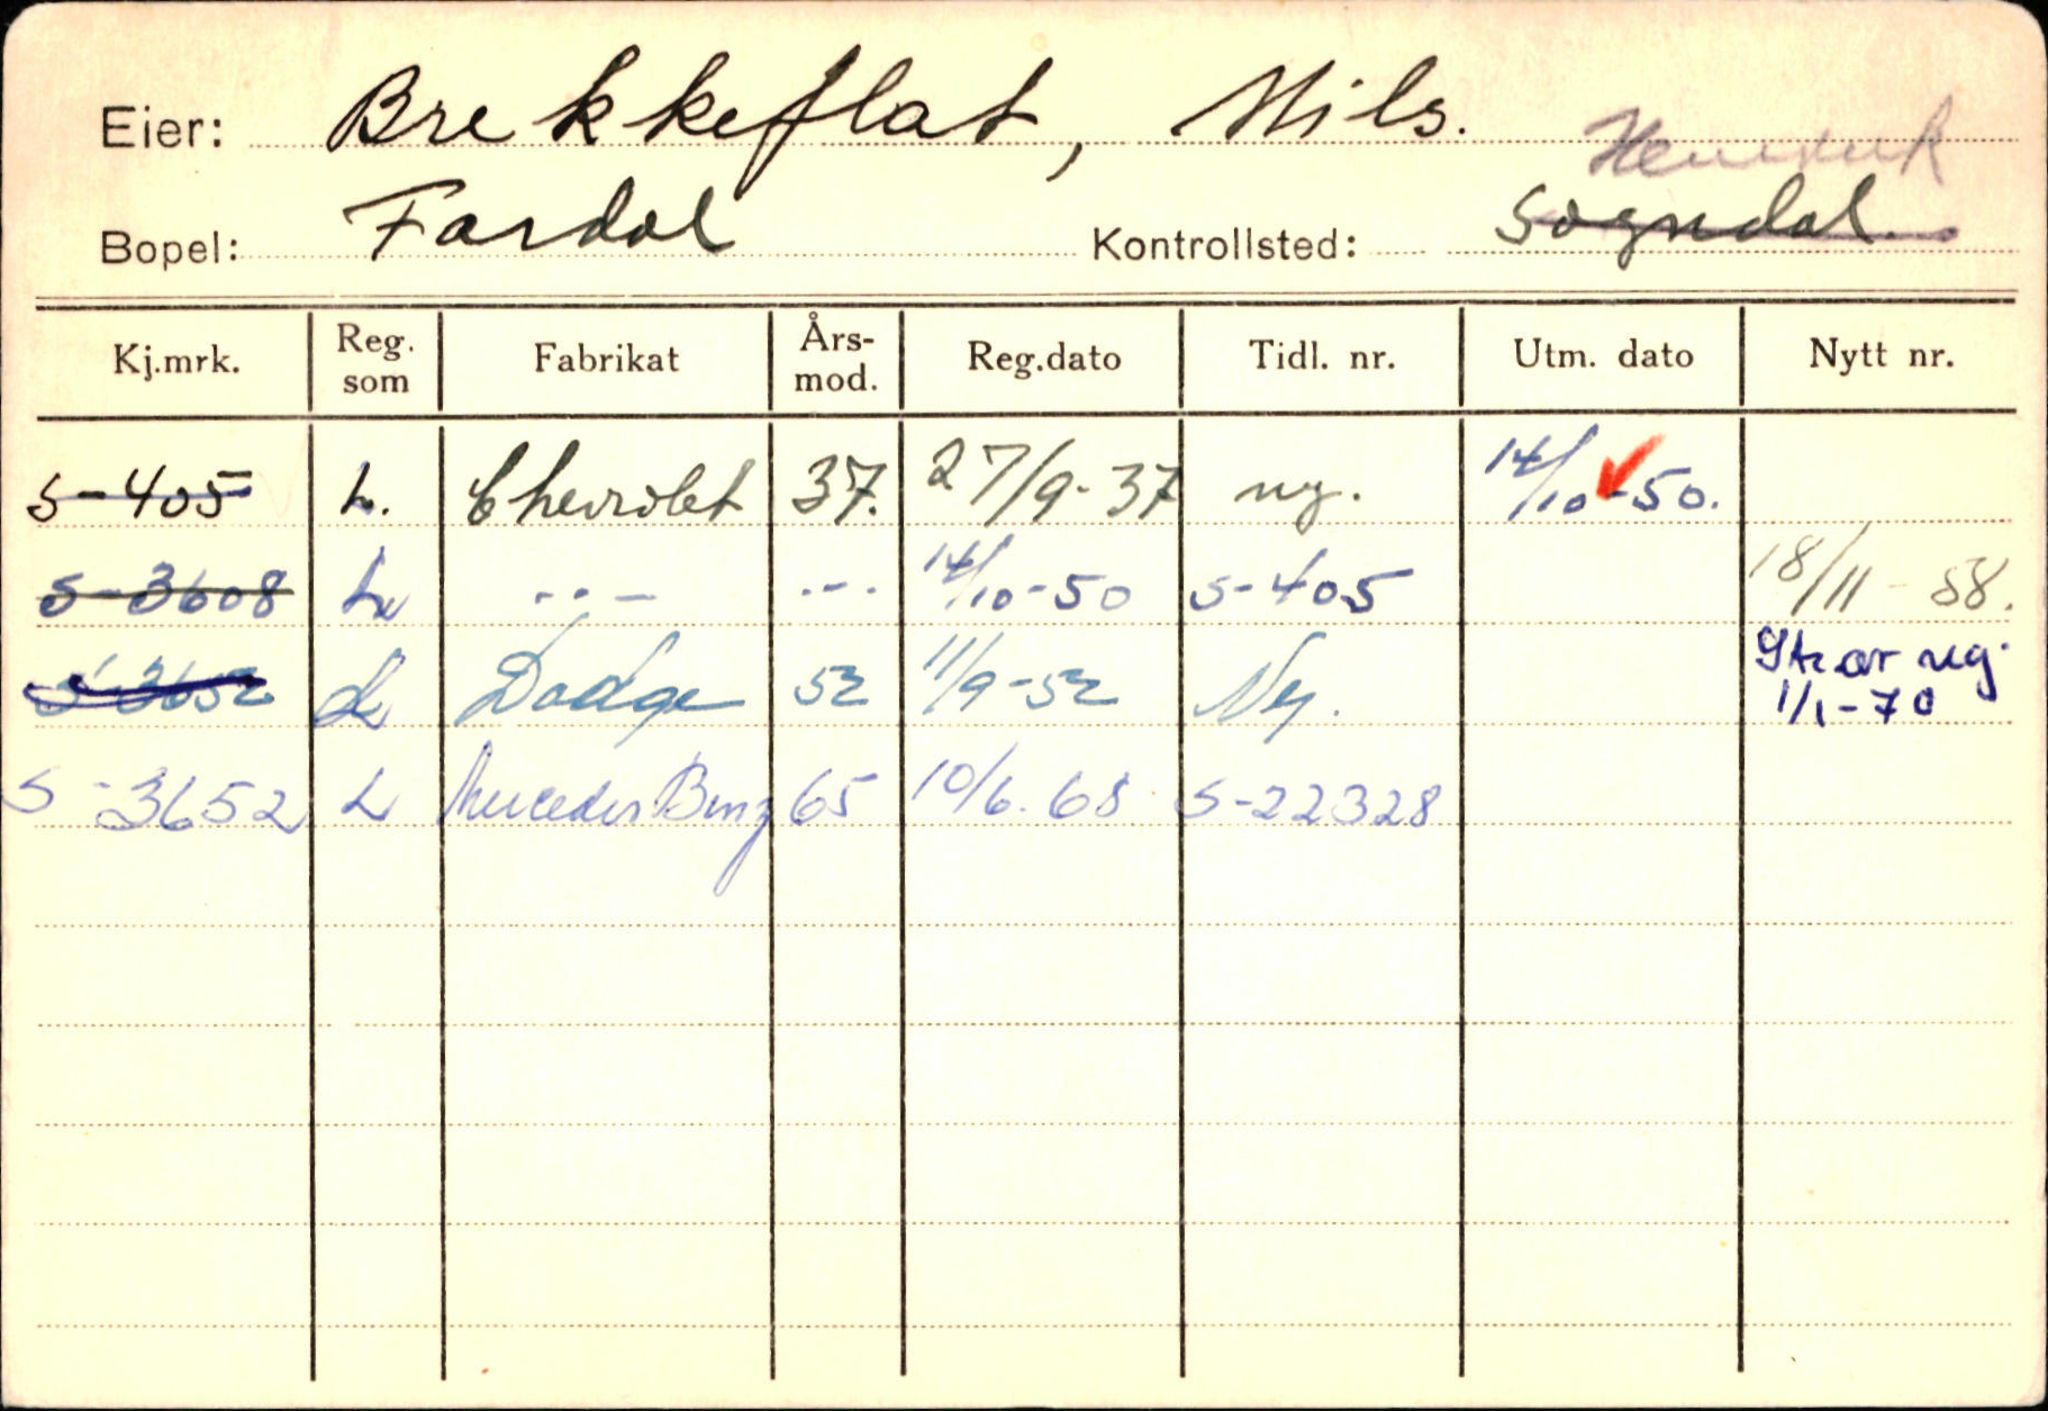 Eier: Brekkeflat, Nils.
Bopel: Fardal Kontrollsted: Sogndal.
Kj.mrk. Reg. som Fabrikat Års-mod. Reg.dato Tidl. nr. Utm. dato Nytt nr.
S-405 L. Chevrolet 37. 27/9-37 ny. 14/10-50.
S-3608 L -..- -..- 14/10-50 S-405 18/11-58.
S-3652 L Dodge 52 11/9-52 Ny. reg. 1/1-70
S-3652 L Mercedes Benz 65 10/6.68 S-22328